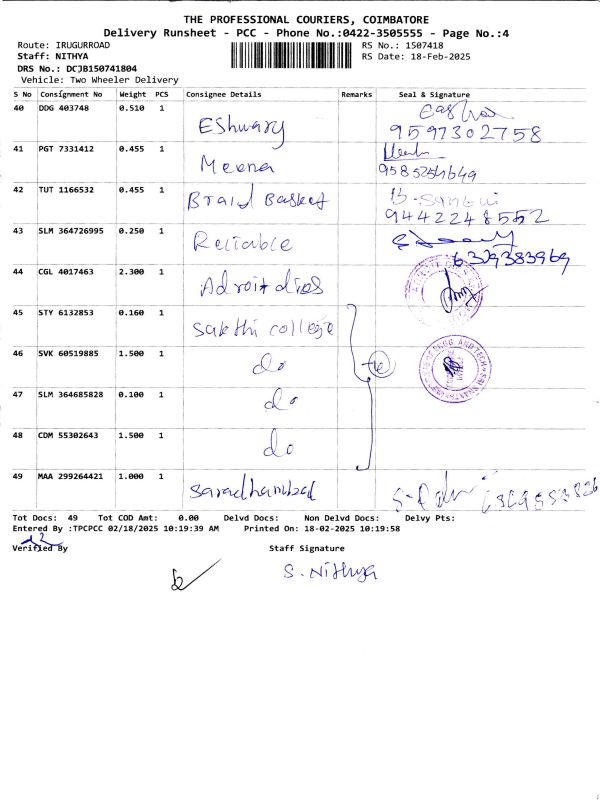 THE PROFESSIONAL COURIERS, COIMBATORE
Delivery Runsheet - PCC - Phone No.:0422-3505555 - Page No.:4
Route: IRUGURROAD RS No.: 1507418
Staff: NITHYA RS Date: 18-Feb-2025
DRS No.: DCJB150741804
Vehicle: Two Wheeler Delivery
S No Consignment No Weight PCS Consignee Details Remarks Seal & Signature
40 DDG 403748 0.510 1 Eshwary 9597302758
41 PGT 7331412 0.455 1 Meena
42 TUT 1166532 0.455 1 Braid Basket 9442248552
43 SLM 364726995 0.250 1 Reliable 6329383969
44 CGL 4017463 2.300 1 Adroit dies
45 STY 6132853 0.160 1 sakthi college
46 SVK 60519885 1.500 1 do
47 SLM 364685828 0.100 1 do
48 CDM 55302643 1.500 1 do
49 MAA 299264421 1.000 1 saradhambal
Tot Docs: 49 Tot COD Amt: 0.00 Delvd Docs: Non Delvd Docs: Delvy Pts:
Entered By :TPCPCC 02/18/2025 10:19:39 AM Printed On: 18-02-2025 10:19:58
Verified By Staff Signature
S. Nithya